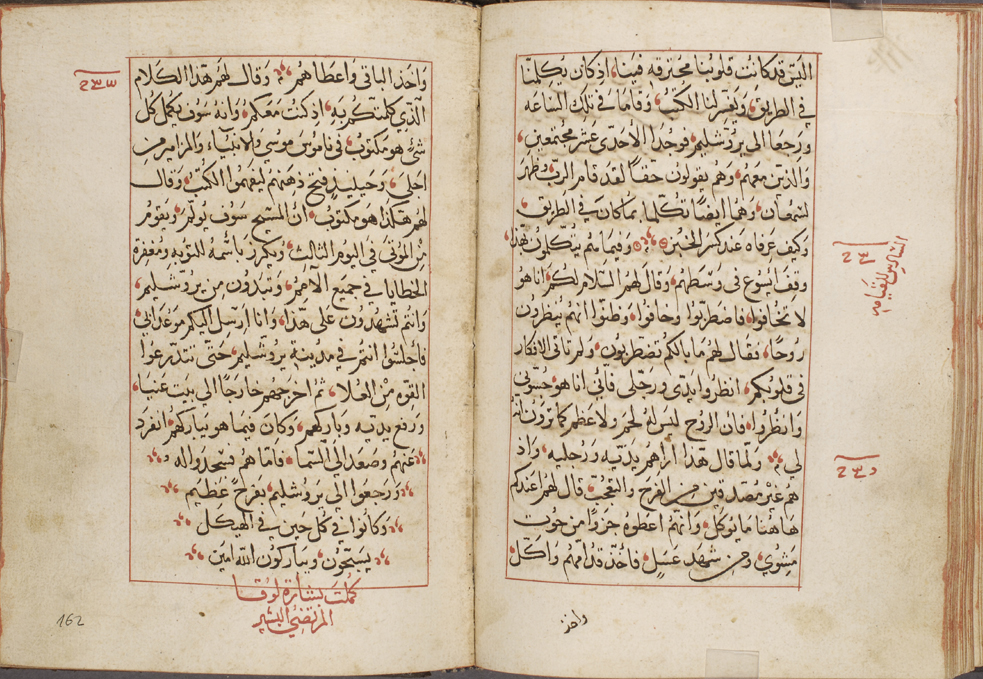 اليس قد كانت قلوبنا محترقه فينا، اذ كان يكلمنا
في الطريق، ويفسر لنا الكتب، وقاما في تلك الساعه
ورجعا الي يروشليم، فوجدا الأحدي عشر مجتمعين،
والذين معهم، وهم يقولون حقاً لقد قام الرب، وظهر
لسمعان، وهما ايضاً تكلما بما كان في الطريق،
وكيف عرفاه عند كسر الخبز، وفيما هم يتكلمون بهذا،
وقف يسوع في وسطهم، وقال لهم السلام لكم، انا هو
لا تخافوا، فاضطربوا وخافوا، وظنوا انهم ينظرون
روحاً، فقال لهم ما بالكم تضطربون، ولم تاتي الافكار
في قلوبكم، انظروا يدي ورجلي فاني انا هو، جسوني
وانظروا، فان الروح ليس له لحم ولا عظم كما ترون انه
لي، ولما قال هذا اراهم يديه ورجليه، واذ
هم غير مصدقين من الفرح والتعجب، قال لهم اعندكم
هاهنا ما يوكل، وانهم اعطوه جزوا من حوت
مشوي، ومن شهد عسل، فاخذ قدامهم واكل،
واخذ
السادس للقيامه
واخذ الباقي واعطاهم، وقال لهم هذا الكلام
الذي كلمتكم به، اذ كنت معكم، وانه سوف يكمل كل
شئ هو مكتوب، في ناموس موسي والانبياء، والمزامير من
اجلي، وحينيذ فتح ذهنهم ليفهموا الكتب، وقال
لهم هكذا هو مكتوب، ان المسيح سوف يولم، ويقوم
من الموتي في اليوم الثالث، ويكرز باسمه للتوبه ومغفرة
الخطايا في جميع الامم، وتبدون من يروشليم،
وانتم تشهدون على هذا، وانا ارسل اليكم موعد ابي،
فأجلسوا انتم في مدينه يروشليم، حتى تتدرعوا
القوه من العلا، ثم اخرجهم خارجاً الي بيت عنيا،
ورفع يديه وباركهم، وكان فيما هو يباركهم، انفرد
عنهم وصعد الي السما، فاما هم فسجدوا له
ورجعوا الي يروشليم، بفرح عظيم
وكانوا في كل حين في الهيكل
يسبحون ويباركون الله امين
كملت بشارة لوقا
المرتضي البشير
162